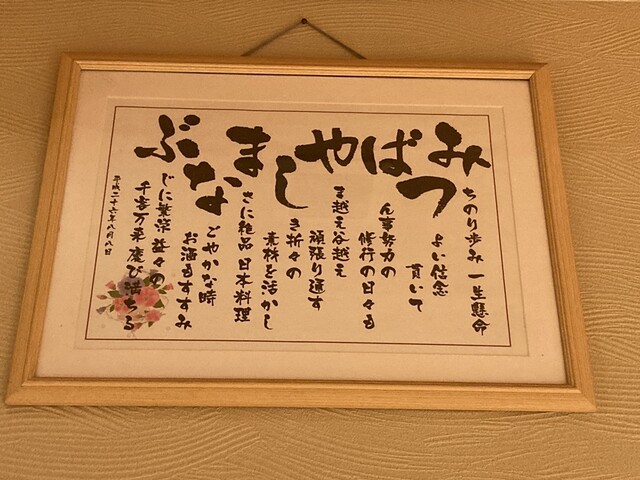 みちのり歩み 一生懸命
つよい信念
貫いて
ばん事努力の
修行の日々も
やま越え谷越え
頑張り通す
しき折々の
素材を活かし
まさに絶品 日本料理
なごやかな時
お酒もすすみ
ぶじに繁栄 益々の
千客万来 慶び満ちる
平成二十六年八月八日